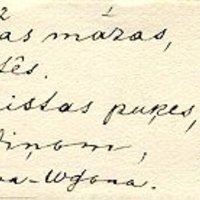 2 1
as mazas,
tês.
istas pukes,
iņom,
a-Wgona.